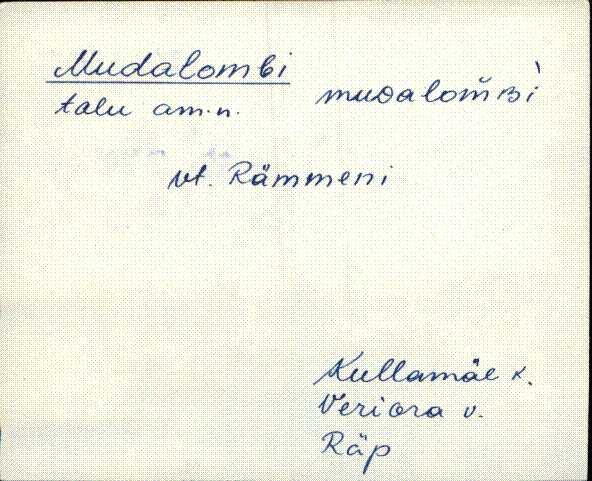 Mudalombi mudalom̆bì
talu am.n.
vt. Rämmeni
Kullamäe k.
Veriora v.
Räp